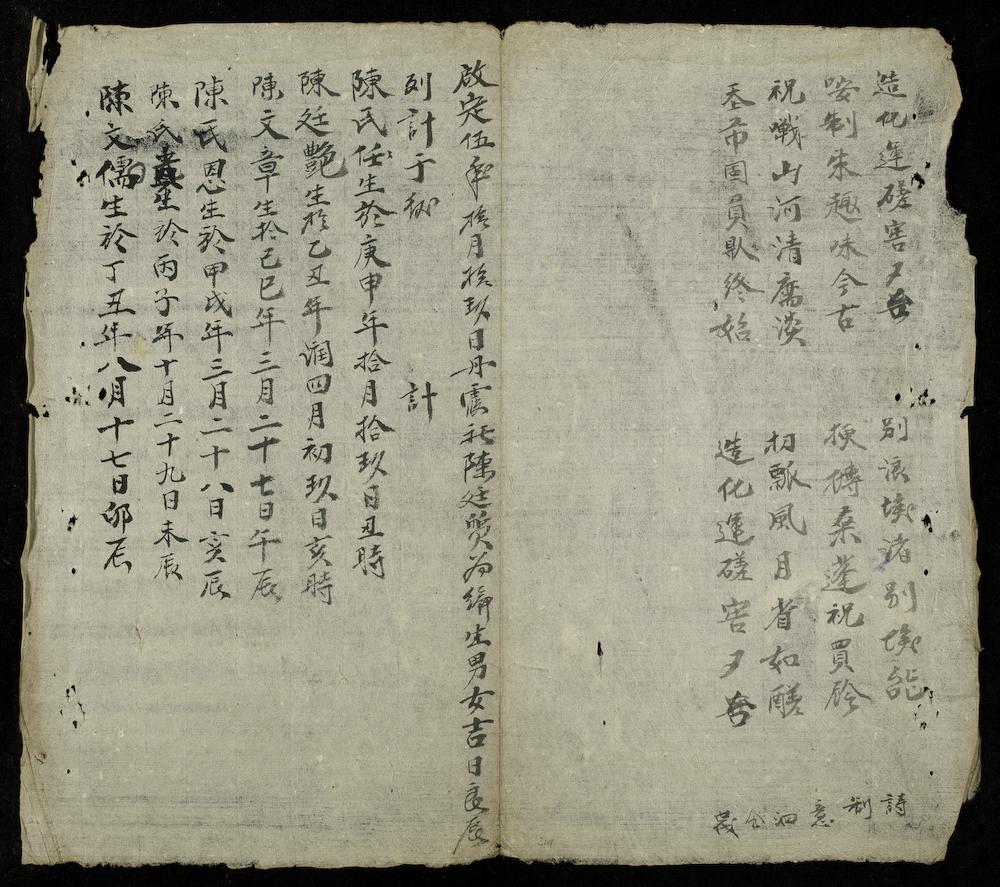 造化運磋害夕吞　別浪埃渚別埃能
咹制朱趣味今古　挭磚桑蓬祝買矜
祝嘰山河清腐淡　扨瓢風月省如醝
丕帀固員欺終始　造化運磋害夕吞
詩制意泗
啟定伍年拾月拾玖日丹㐌社陳廷質為編生男女吉日良辰
列計于後　計
陳氏任生於庚申年拾月拾玖日丑時
陳廷艷生於乙丑年潤四月初玖日亥時
陳文章生於己巳年三月二十七日午辰
陳氏恩生於甲戌年三月二十八日亥辰
陳氏 生於丙子年十月二十九日未辰
陳文儒生於丁丑年八月十七日卯辰